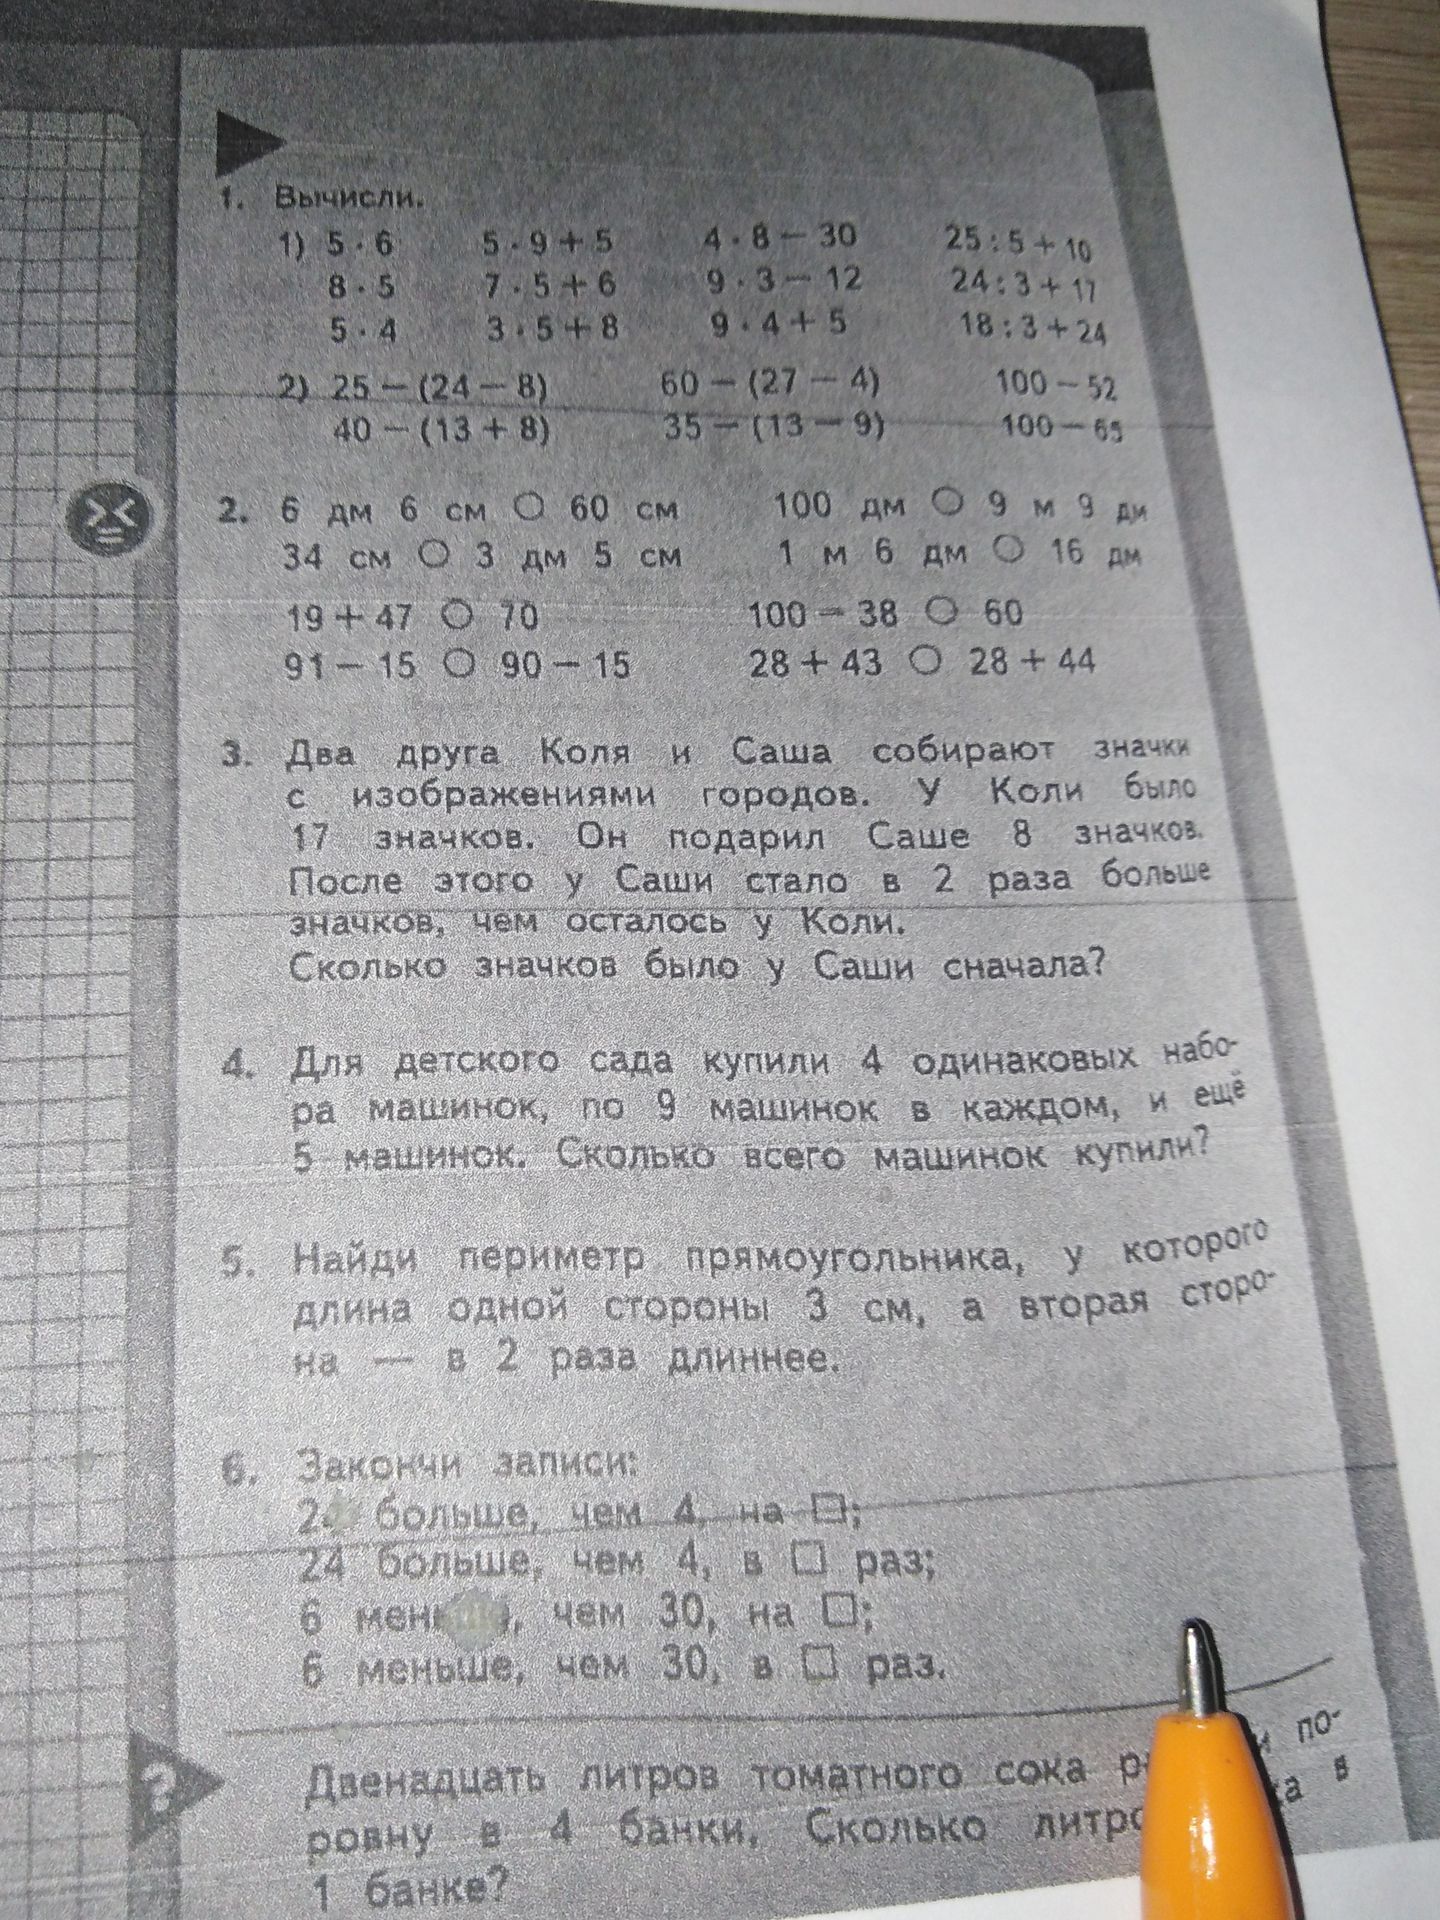 1. Вычисли.
1) 5 · 6 5 · 9 + 5 4 · 8 − 30 25 : 5 + 10
8 · 5 7 · 5 + 6 9 · 3 − 12 24 : 3 + 17
5 · 4 3 · 5 + 8 9 · 4 + 5 18 : 3 + 24
2) 25 − (24 − 8) 60 − (27 − 4) 100 − 52
40 − (13 + 8) 35 − (13 − 9) 100 − 65
2. 6 дм 6 см ○ 60 см 100 дм ○ 9 м 9 дм
34 см ○ 3 дм 5 см 1 м 6 дм ○ 16 дм
19 + 47 ○ 70 100 − 38 ○ 60
91 − 15 ○ 90 − 15 28 + 43 ○ 28 + 44
3. Два друга Коля и Саша собирают значки
с изображениями городов. У Коли было
17 значков. Он подарил Саше 8 значков.
После этого у Саши стало в 2 раза больше
значков, чем осталось у Коли.
Сколько значков было у Саши сначала?
4. Для детского сада купили 4 одинаковых набо-
ра машинок, по 9 машинок в каждом, и ещё
5 машинок. Сколько всего машинок купили?
5. Найди периметр прямоугольника, у которого
длина одной стороны 3 см, а вторая сторо-
на — в 2 раза длиннее.
6. Закончи записи:
больше, чем 4, на □;
24 больше, чем 4, в □ раз;
6 меньше, чем 30, на □;
6 меньше, чем 30, в □ раз.
? Двенадцать литров томатного сока по-
ровну в 4 банки. Сколько в
1 банке?